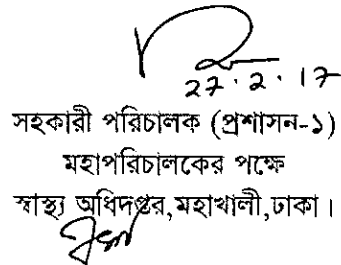 27.2.17
সহকারী পরিচালক (প্রশাসন-১)
মহাপরিচালকের পক্ষে
স্বাস্থ্য অধিদপ্তর,মহাখালী,ঢাকা।